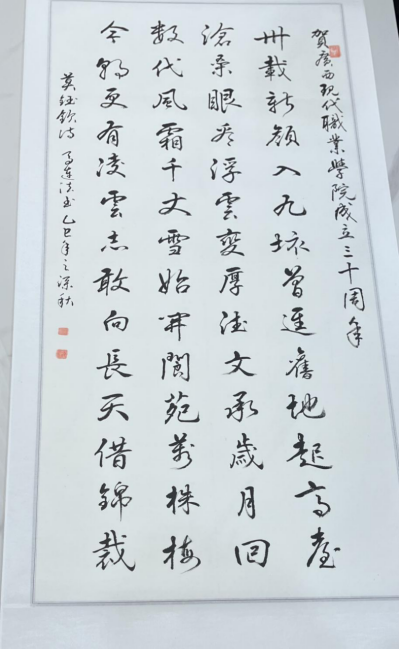 賀廣西現代職業學院成立三十周年
卅載新顏入九垓曾進舊地起高臺
滄桑眼底浮雲變厚德文承歲月回
數代風霜千丈雪始開閬苑萬株梅
今朝更有凌雲志敢向長天借錦裁
莫鈺欽詩 馬連法書乙巳年之深秋